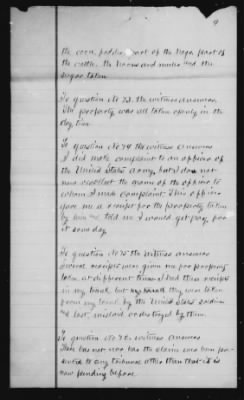 9
the corn, fodder, part of the hogs part of
the cattle. the horse and mules and the
sugar taken
To question No 73. the witness answers
The property was all taken openly in the
day time.
To question No 74 the witness answers
I did make complaint to an officer of
the United States army, but I does not
now recollect the name of the officer to
whom I made complaint This officer
gave me a receipt for the property taken
by him and told me I would get pay for
it some day
To question No 75 the witness answers
Several receipts were given me for property
taken at different times I had these receipts
in my trunk but my trunk they was taken
from my house by the United States soldiers
and lost, mislaid or destroyed by them.
To question No 76 witness answers
There has not nor has the claim ever been pre-
sented to any tribunal other than that it is
now pending before